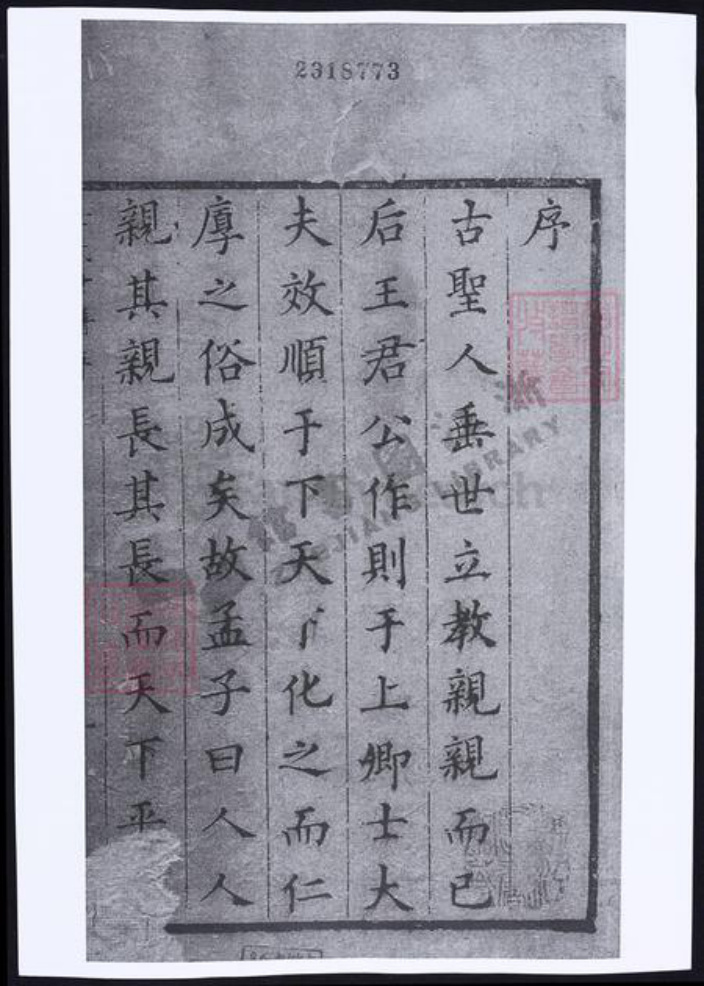 2318773
序
古聖人垂世立教親親而已
后王君公作則于上卿士大
夫效順于下天下化之而仁
厚之俗成矣故孟子曰人人
親其親長其長而天下平